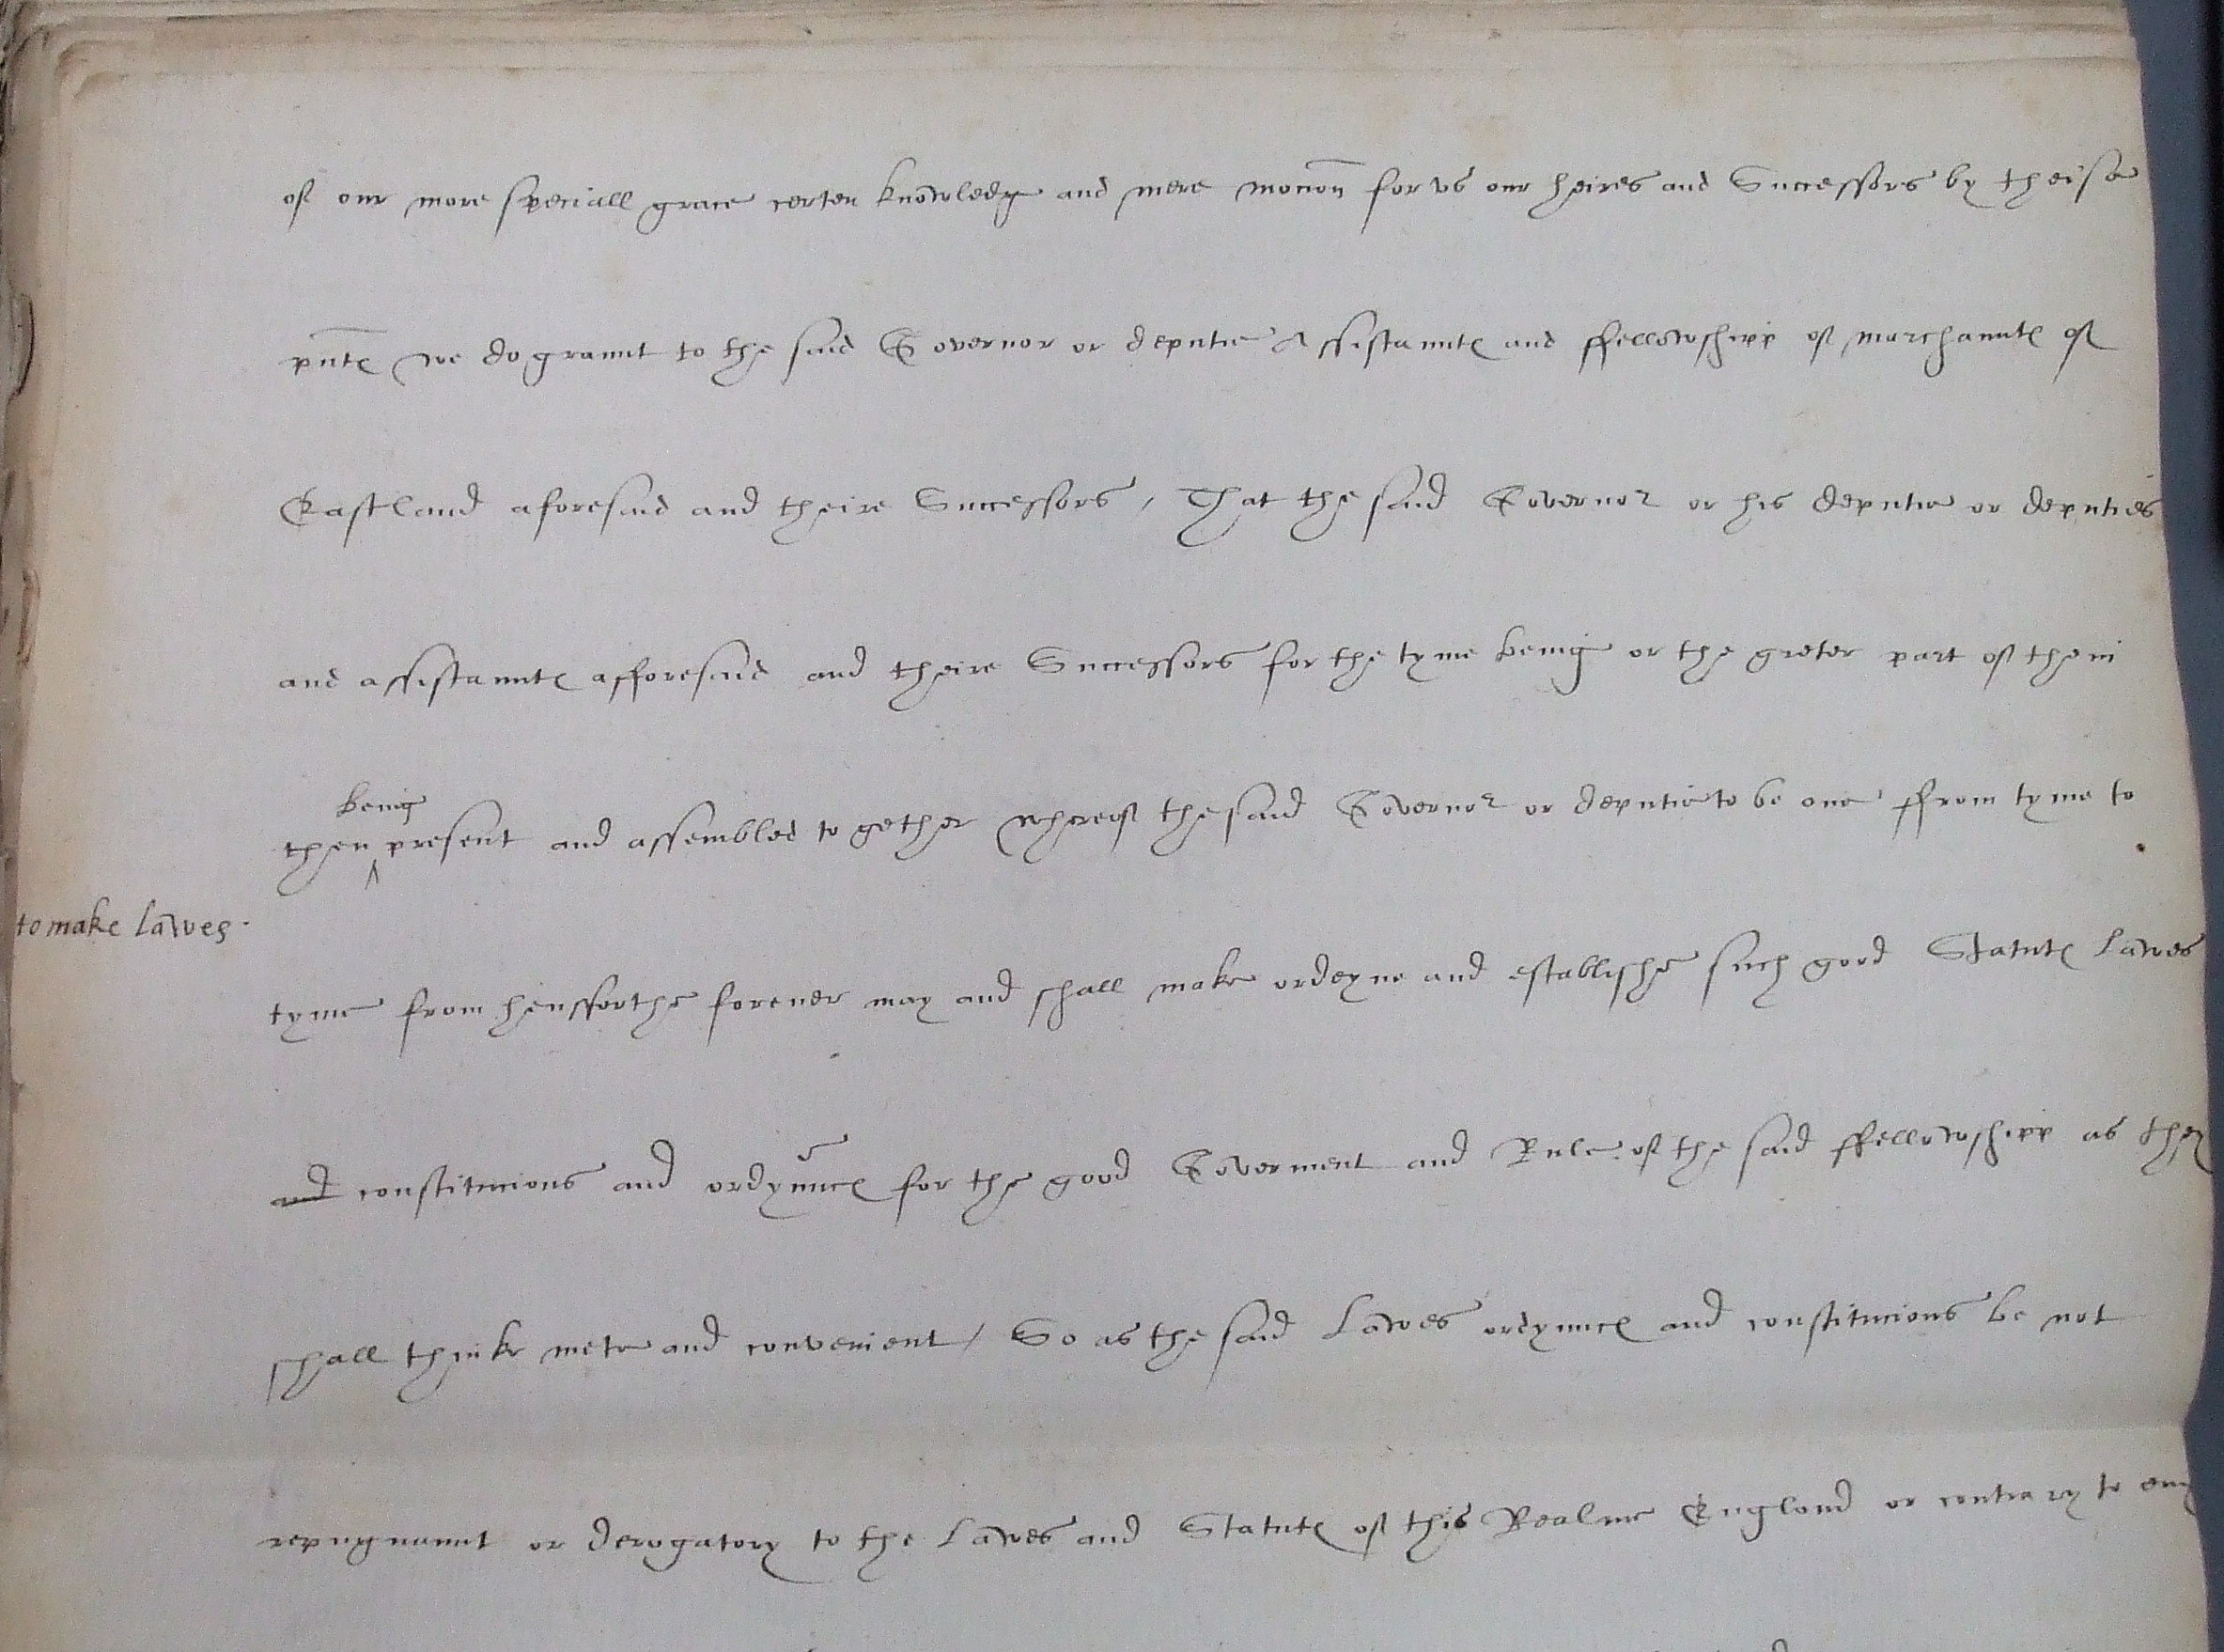 of our more speciall grace certen knowledg and mere mocion for us our heires and Successors by theise
pntes we do graunt to the said Governor or deputie Assistauntes and ffellowshipp of marchauntes of
Eastland aforesaid and theire Successors, That the said Governor or his deputie or deputies
and assistauntes afforesaid and theire Successors for the tyme being or the greter part of them
being
then present and assembled together whereof the said Governor or deputie to be one ffrom tyme to
to make lawes.
tyme from hensfforthe forever may and shall make ordeyne and establishe such good Statutes Lawes
and constitucions and ordynnces for the good Goverment and Rule of the said ffellowshipp as they
shall thinke mete and convenient / So as the said Lawes ordynnces and constitucions be not
repugnaunt or derogatory to the Lawes and Statutes of this Realme England or contrary to any